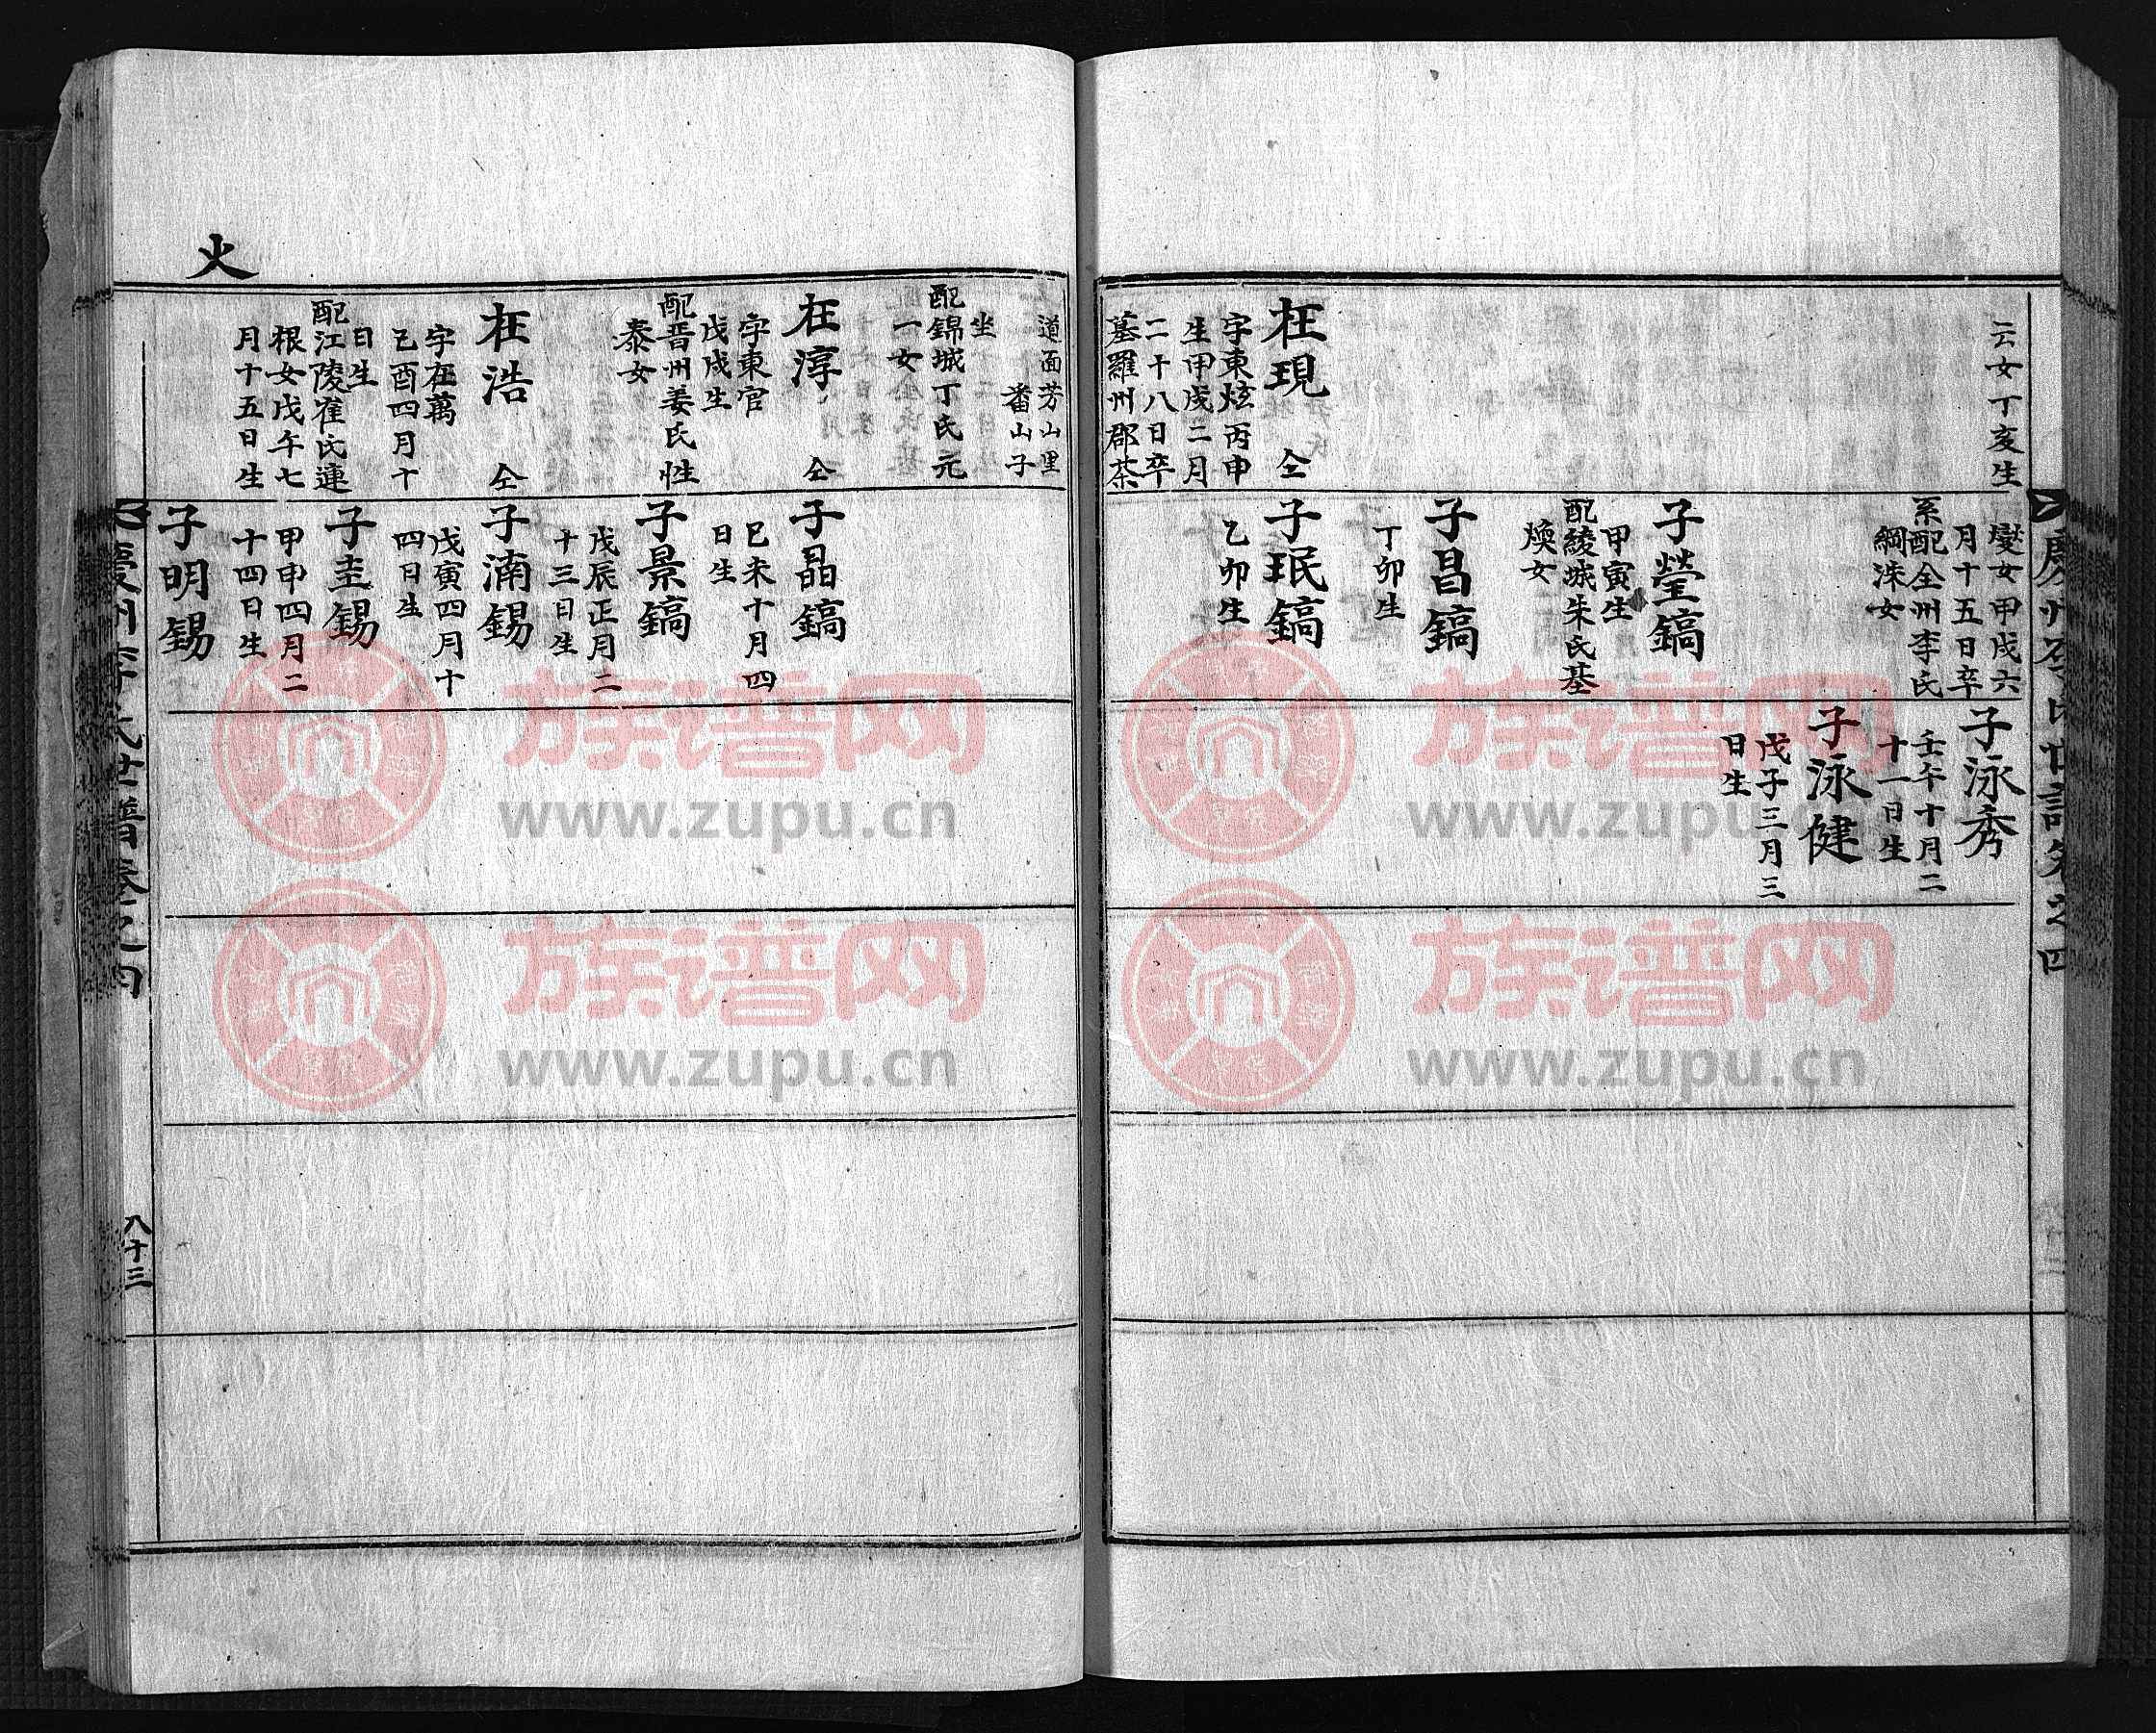 云女丁亥生
燮女甲戌六
月十五日卒
系配全州李氏
綱洙女
子瑩鎬
甲寅生
配綾城朱氏基
煥女
子昌鎬
丁卯生
子泳秀
壬午十月二
十一日生
子泳健
戊子三月三
日生
枉現 仝
字東炫丙申
生甲戌二月
二十八日卒
墓羅州郡茶
子珉鎬
乙卯生
道面芳山里
番山子
坐
配錦城丁氏元
一女
枉淳 仝
字東官
戊戌生
配晋州姜氏性
泰女
子晶鎬
己未十月四
日生
子景鎬
戊辰正月二
十三日生
枉浩 仝
字枉萬
己酉四月十
日生
配江陵崔氏連
根女戊午七
月十五日生
子湳錫
戊寅四月十
四日生
子圭錫
甲申四月二
十四日生
子明錫
火
慶州李氏世譜卷之四
八十三
族谱网
www.zupu.cn
族谱网
www.zupu.cn
族谱网
www.zupu.cn
族谱网
www.zupu.cn